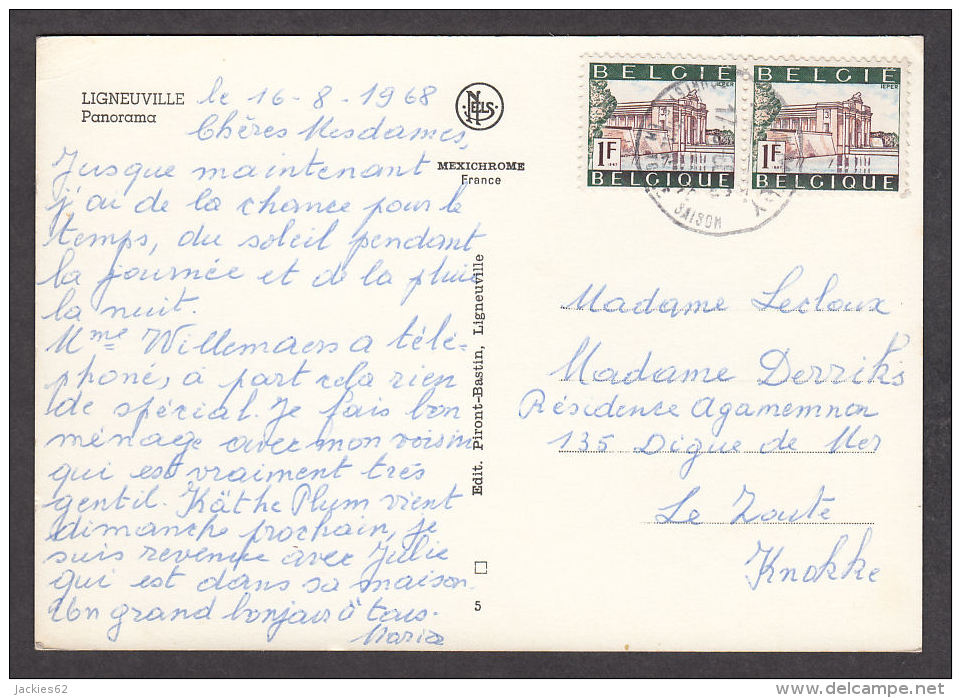 LIGNEUVILLE
Panorama
le 16-8-1968
Chères Mesdames,
Jusque maintenant
j'ai de la chance pour le
temps, du soleil pendant
la journée et de la pluie
la nuit.
Mme Willemaers a télé-
phoné, à part cela rien
de spécial. Je fais bon
ménage avec mon voisin
qui est vraiment très
gentil. Käthe Plum vient
dimanche prochain, je
suis revenue avec Julie
qui est dans sa maison.
Un grand bonjour à tous.
Maria
NELS
MEXICHROME
France
Edit. Piront-Bastin, Ligneuville
5
BELGIË
IEPER
1F
1967
BELGIQUE
BELGIË
IEPER
1F
1967
BELGIQUE
17
SAISON
Madame Lecloux
Madame Derriks
Résidence Agamemnon
135 Digue de Mer
Le Zoute
Knokke
jackies62
http://www.delcampe.net